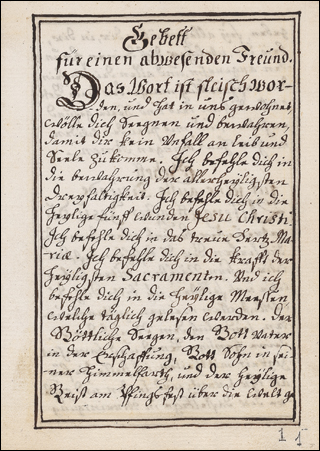 Gebett
für einen abwesenden Freund.
Das Wort ist fleisch wor-
den, und hat in uns gewohnet
wölle dich Seegnen und bewahren,
damit dir kein Unfall an leib und
Seele zukomme. Ich befehle dich in
die bewahrung der allerheyligsten
Dreyfaltigkeit. Ich befehle dich in die
heylige fünff wunden Jesu Christi
Ich befehle dich in das treue Hertz Ma-
riæ. Ich befehle dich in die krafft der
heyligsten Sacramenten. Und ich
befehle dich in die heylige Messen
welche täglich gelesen werden. der
Göttliche Seegen, den Gott Vater
in der Erschaffung, Gott Sohn in sei-
ner Himmelfarth, und der heylige
Geist am Pfingstfest über die welt ge
1 1